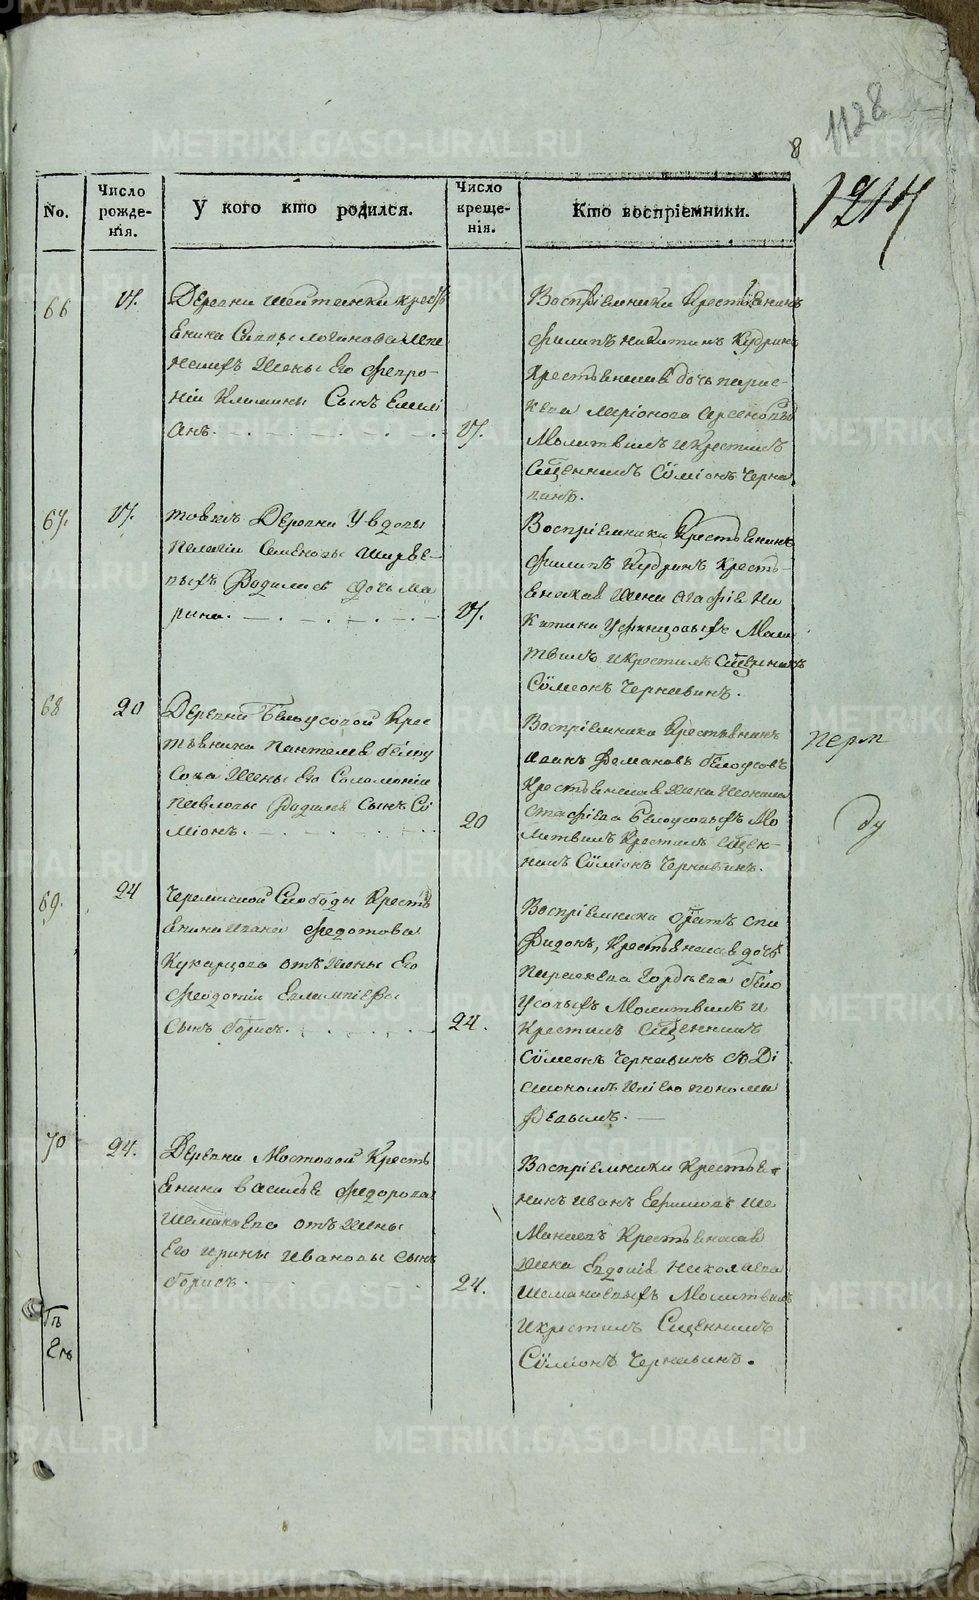 1128
8
1217
No.
Число рожде- нія.
У кого кто родился.
Число креще- нія.
Кто воспріемники.
66
17.
Деревни Шейтанки крестъ
янина Саввы Логинова
Жены Его Февро-
ніи Климины Сынъ Емелі
анъ.
17.
Воспріемники Крестьянинъ
Филипъ Никитинъ Кудринъ
Крестьянская дочь парас-
кева
Молитвилъ и Крестилъ
Сщенникъ Сѵмеонъ Черна
винъ.
67.
17.
товкъ Деревни У вдовы
Пелагіи Семеновы Ширяе-
выхъ Родилась дочь Ма
рина.
17.
Воспріемники Крестьянинъ
Филипъ Кудринъ Кресть-
янская Жена Агафія Ни
китина Моли
твилъ и крестилъ Сщенникъ
Сѵмеонъ Чернавинъ.
68
20
Деревни Белоусовой Крес
тьянина Пантелея бѣлоу
сова Жены Его Соломоніи
Павловы Родился Сынъ Сѵ
міонъ.
20
Воспріемники Крестьянинъ
Иванъ Романовъ бѣлоусовъ
Крестьянская Жена
Белоусовыхъ Мо
литвилъ Крестилъ Сщен-
никъ Сѵміонъ Чернавинъ.
перп
ду
69.
24
Черемиской Слободы Кресть
янина Ивана Федотова
Кукарцова отъ Жены Его
Феодосіи Евлампіевы
Сынъ борисъ.
24.
Воспріемники братъ Спи
ридонъ, Крестьянская дочь
Параскева Гордѣева бѣло
усовыхъ Молитвилъ и
Крестилъ Сщенникъ
Сѵмеонъ Чернавинъ съ Ді
акономъ Иліею понома
ревымъ.
70
24.
Деревни Мостовой Кресть
янина Василья Федорова
Шеманаева отъ Жены
Его Ирины Ивановы Сынъ
борисъ.
24.
Воспріемники Крестья-
нинъ Иванъ Ефимовъ Ше
манаевъ Крестьянская
Жена Евдокія Николаева
Шеманаевыхъ Молитвилъ
и крестилъ Сщенникъ
Сѵміонъ Чернавинъ.
METRIKI.GASO-URAL.RU